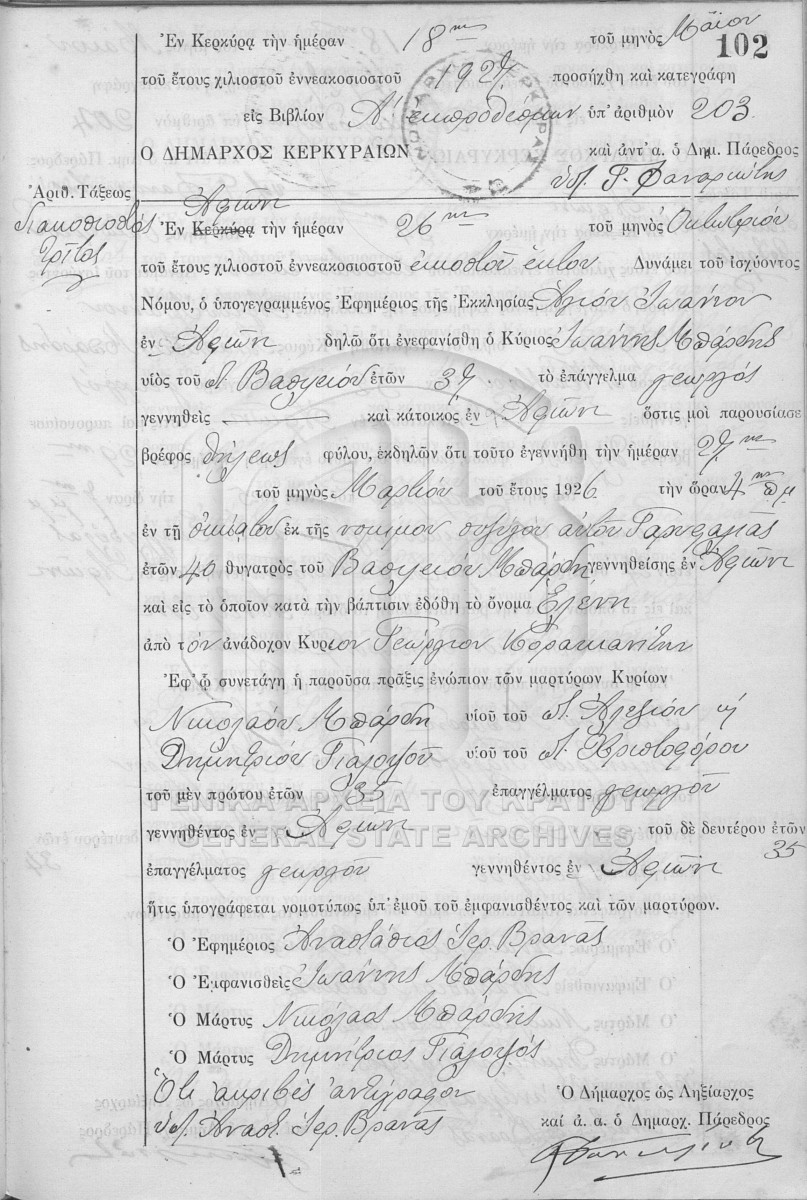 Ἐν Κερκύρᾳ τὴν ἡμέραν 18ην τοῦ μηνὸς Μάϊον
102
τοῦ ἔτους χιλιοστοῦ ἐννεακοσιοστοῦ 1927 προσήχθη καὶ κατεγράφη
εἰς Βιβλίον Α΄ ἐκπροθέσμων ὑπ' ἀριθμὸν 203
Ο ΔΗΜΑΡΧΟΣ ΚΕΡΚΥΡΑΙΩΝ καὶ ἀντ' α. ὁ Δημ. Πάρεδρος
Γ. Φαναριώτης
Ἀριθ. Τάξεως
Διακοσιοστὸς
τρίτος
Ἀφιῶνι
Ἐν Κερκύρᾳ τὴν ἡμέραν 26ην τοῦ μηνὸς Ὀκτωβρίου
τοῦ ἔτους χιλιοστοῦ ἐννεακοσιοστοῦ εἰκοστοῦ ἕκτου Δυνάμει τοῦ ἰσχύοντος
Νόμου, ὁ ὑπογεγραμμένος Ἐφημέριος τῆς Ἐκκλησίας Ἁγίου Ἰωάννου
ἐν Ἀφιῶνι δηλῶ ὅτι ἐνεφανίσθη ὁ Κύριος Ἰωάννης Μπάρδης
υἱὸς τοῦ π. Βασιλείου ἐτῶν 37 τὸ ἐπάγγελμα γεωργὸς
γεννηθεὶς καὶ κάτοικος ἐν Ἀφιῶνι ὅστις μοὶ παρουσίασε
βρέφος θήλεως φύλου, ἐκδηλῶν ὅτι τοῦτο ἐγεννήθη τὴν ἡμέραν 27ην
τοῦ μηνὸς Μαρτίου τοῦ ἔτους 1926 τὴν ὥραν 4ην πμ
ἐν τῇ οἰκίᾳ του ἐκ τῆς νομίμου συζύγου αὐτοῦ Γαρυφαλιᾶς
ἐτῶν 40 θυγατρὸς τοῦ Βασιλείου Μπάρδη γεννηθείσης ἐν Ἀφιῶνι
καὶ εἰς τὸ ὁποῖον κατὰ τὴν βάπτισιν ἐδόθη τὸ ὄνομα Ἑλένη
ἀπὸ τὸν ἀνάδοχον Κυριον Γεώργιον Κορακιανίτην
Ἐφ' ᾧ συνετάγη ἡ παροῦσα πρᾶξις ἐνώπιον τῶν μαρτύρων Κυρίων
Νικολάου Μπάρδη υἱοῦ τοῦ π. Ἀλεξίου
Δημητρίου Γιαλοψοῦ υἱοῦ τοῦ π. Χριστοφόρου
τοῦ μὲν πρώτου ἐτῶν 35 ἐπαγγέλματος γεωργοῦ
γεννηθέντος ἐν Ἀφιῶνι τοῦ δὲ δευτέρου ἐτῶν 35
ἐπαγγέλματος γεωργοῦ γεννηθέντος ἐν Ἀφιῶνι
ἥτις ὑπογράφεται νομοτύπως ὑπ' ἐμοῦ τοῦ ἐμφανισθέντος καὶ τῶν μαρτύρων.
Ὁ Ἐφημέριος Ἀναστάσιος Ἱερ. Βρανᾶς
Ὁ Ἐμφανισθεὶς Ἰωάννης Μπάρδης
Ὁ Μάρτυς Νικόλαος Μπάρδης
Ὁ Μάρτυς Δημήτριος Γιαλοψὸς
Ὅτι ἀκριβὲς ἀντίγραφον
Ἀναστ. Ἱερ. Βρανᾶς
Ὁ Δήμαρχος ὡς Ληξίαρχος
καὶ ἀ. α. ὁ Δημαρχ. Πάρεδρος
ΓΕΝΙΚΑ ΑΡΧΕΙΑ ΤΟΥ ΚΡΑΤΟΥΣ
GENERAL STATE ARCHIVES